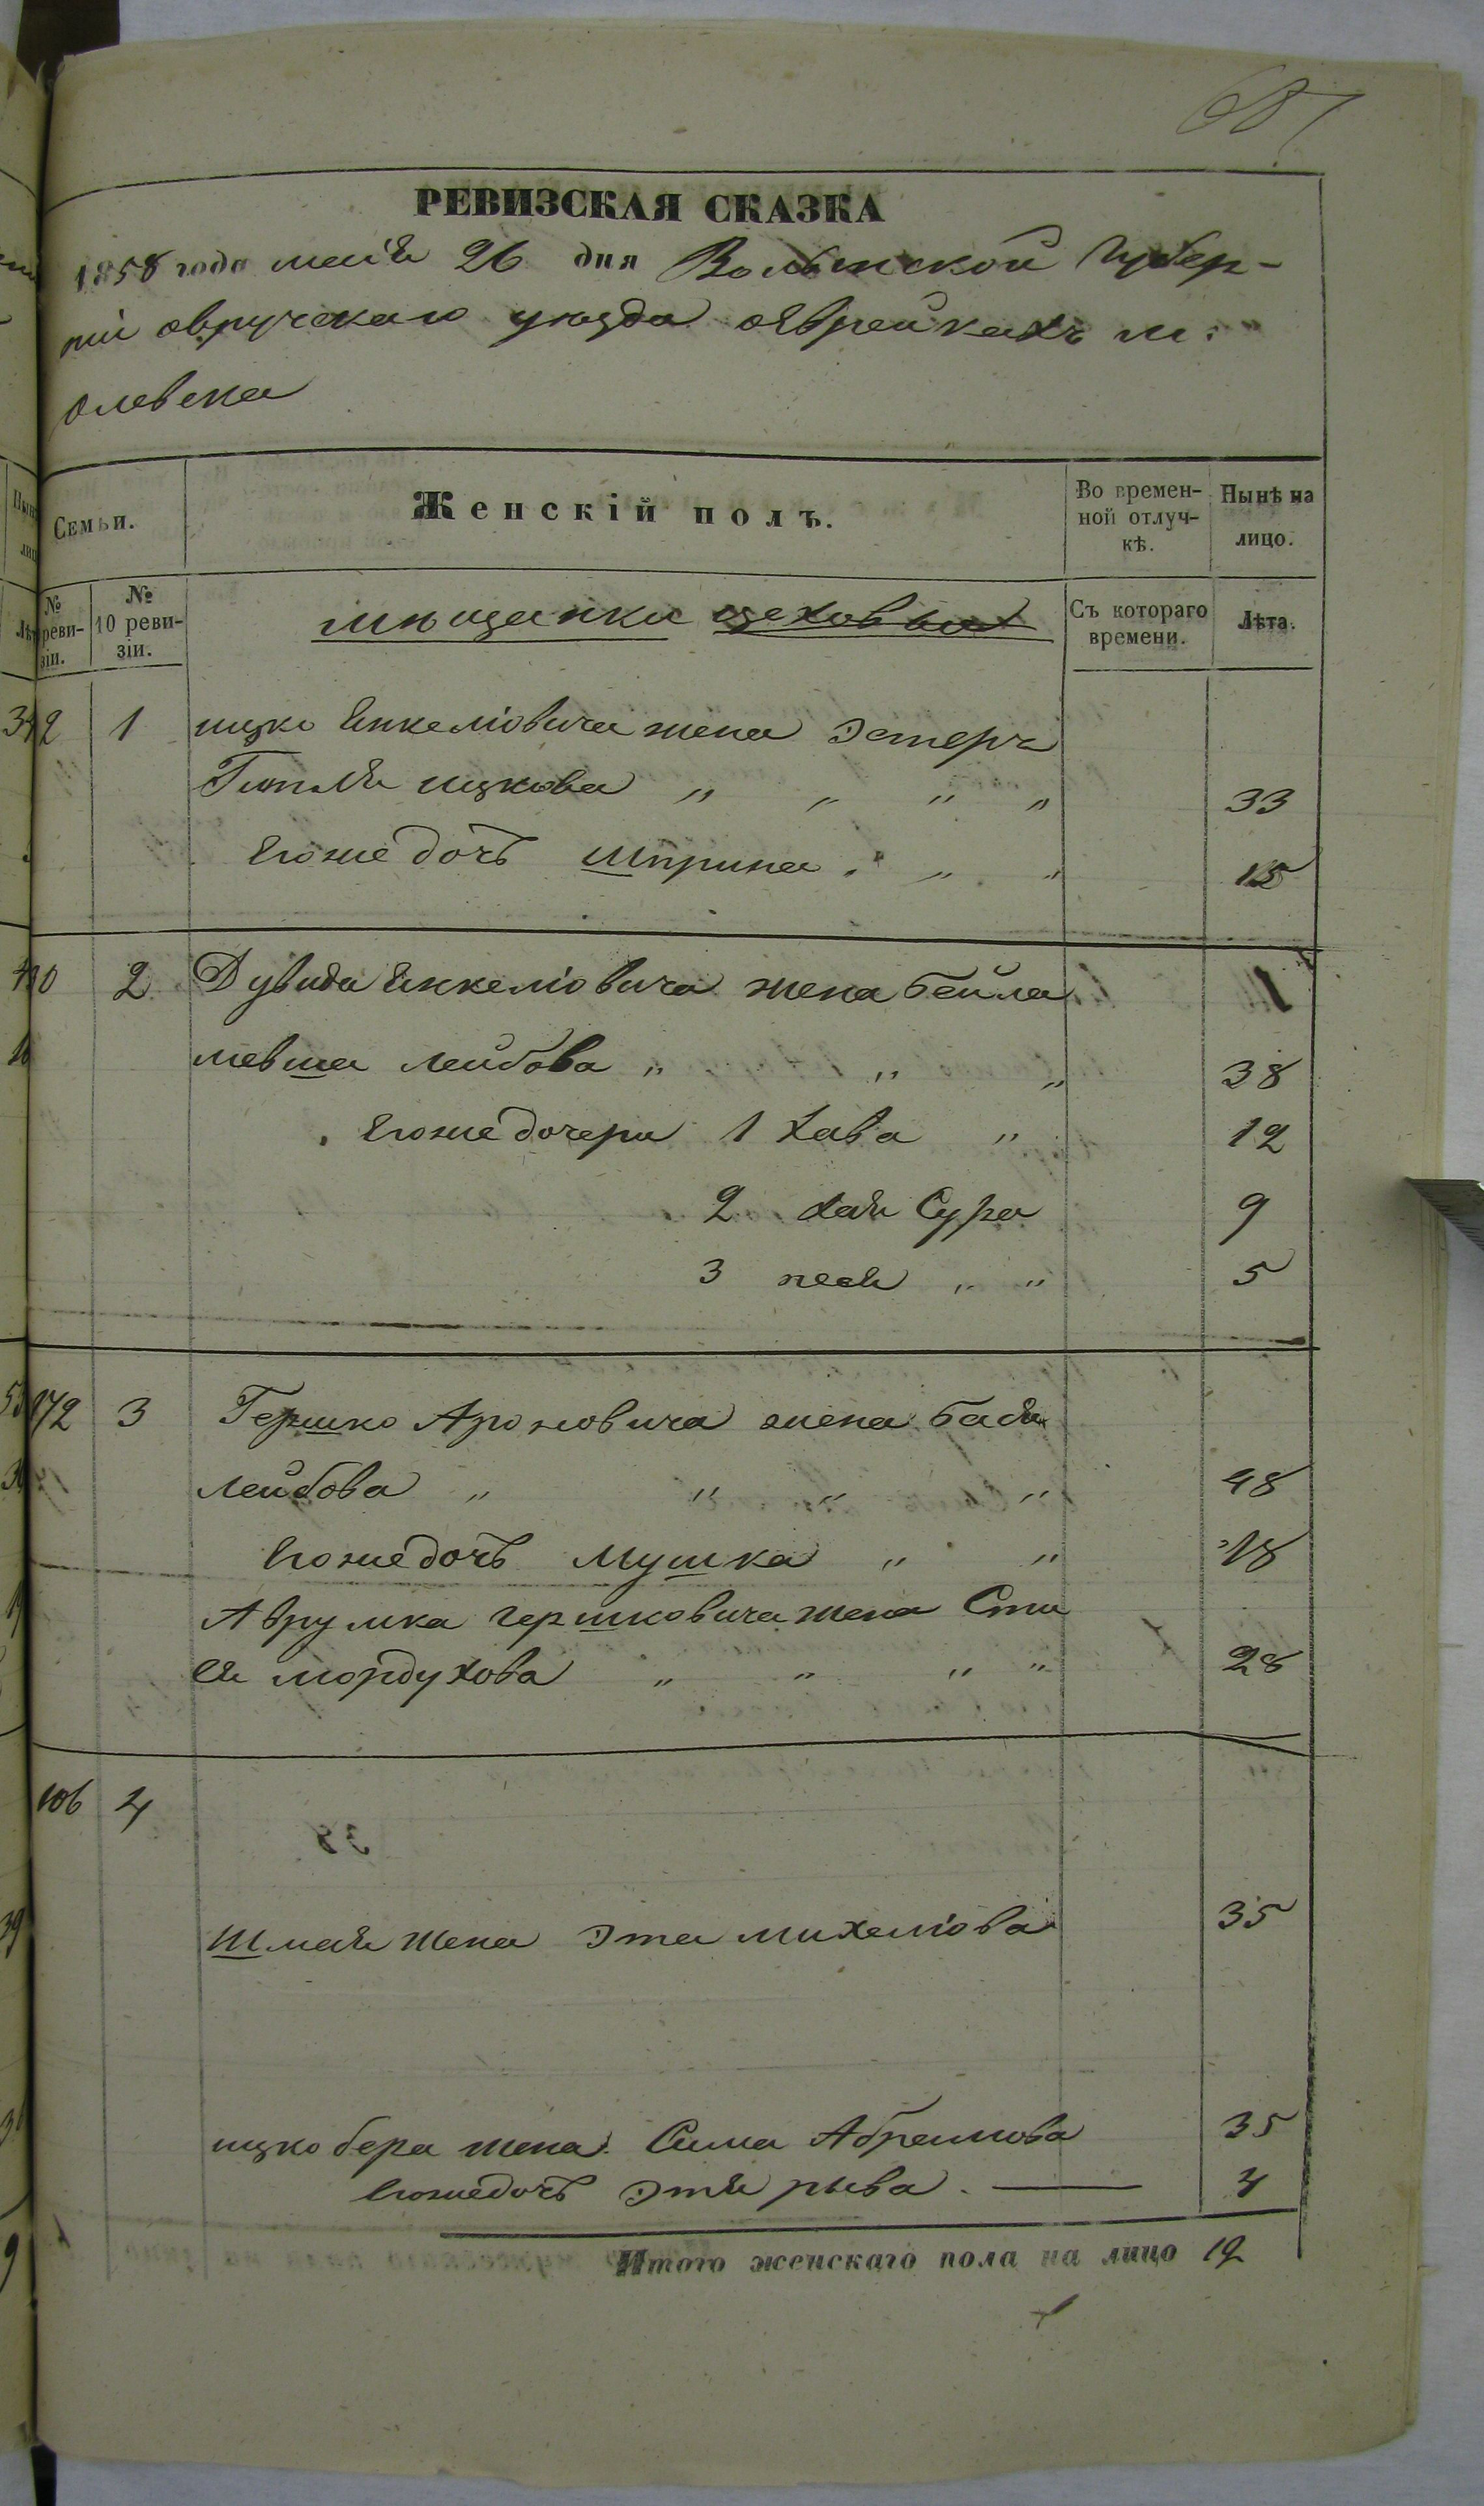 687
РЕВИЗСКАЯ СКАЗКА
1858 года маія 26 дня Волынской Губер-
ніи овручскаго уѣзда оевреӥкахъ м:
олевска
Семьи.
Женскій полъ.
Во времен-
ной отлуч-
кѣ.
Нынѣ на
лицо.
№
реви-
зіи.
№
10 реви-
зіи.
мѣщанки цеховыя
Съ котораго
времени.
Лѣта.
2 1 ицко Янкеліовича жена Эстеръ
Гитля ицкова „ „ „ „ 33
Егоже дочь Шпринца „ „ 15
2 Дувида Янкеліовича жена беӥла
лейбова „ „ „ 38
Егоже дочери 1 Хава „ 12
2 хая Сура 9
3 песя „ „ 5
172 3 Гершко Ароновича жена бася
леӥбова „ „ „ „ 48
Егоже дочь Мушка „ „ 18
Аврумка гершковича жена Сти
ся мордухова „ „ „ „ 28
106 4
Шмая жена Эта михеліова 35
ицко бера жена Сима Абрамова 35
Егоже дочь Этя рыва. — 4
Итого женскаго пола на лицо 12